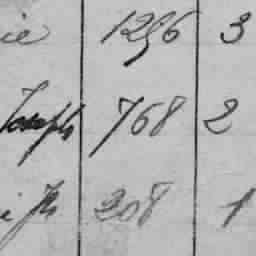 ie 1296 3
Joseph 768 2
i fils 208 1